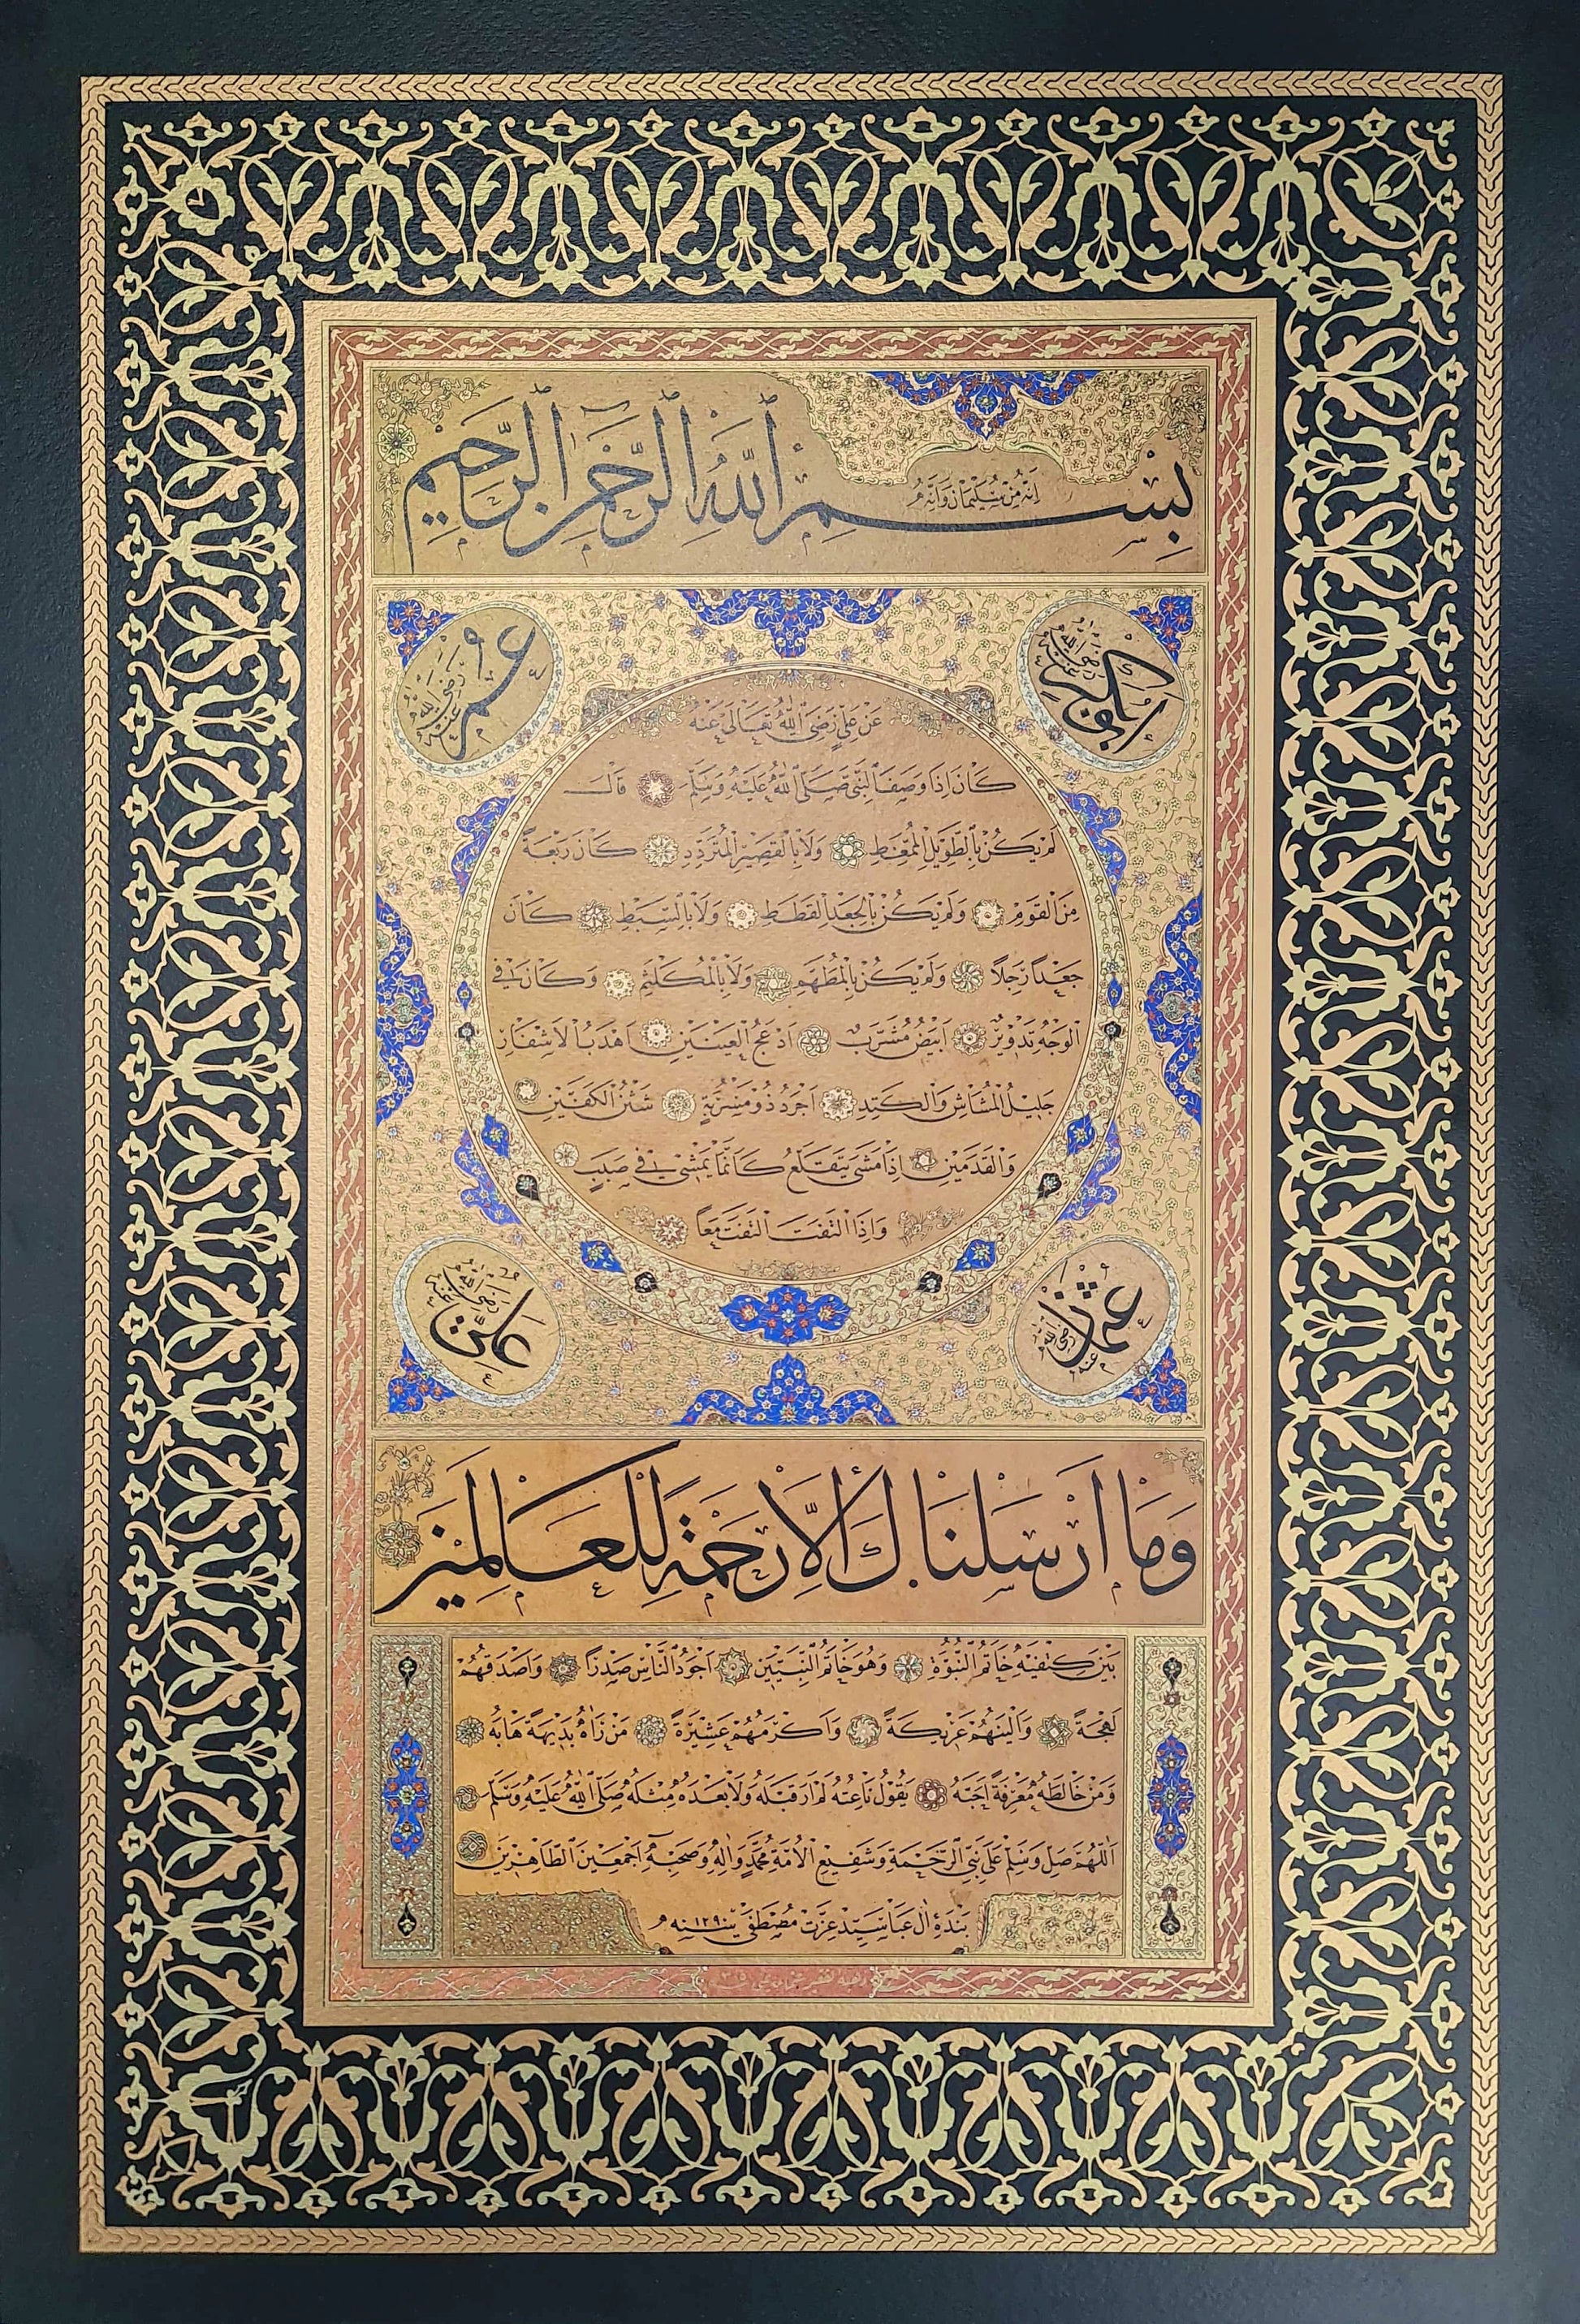 بِسْمِ اللّٰهِ الرَّحْمٰنِ الرَّحِيمِ
اِنَّهُ مِنْ سُلَيْمَانَ وَاِنَّهُ
ابوبكر رضى الله عنه
عمر رضى الله عنه
عَنْ عَلِيٍّ رَضِيَ اللّٰهُ تَعَالٰى عَنْهُ
كَانَ اِذَا وَصَفَ النَّبِيَّ صَلَّى اللّٰهُ عَلَيْهِ وَسَلَّمَ قَالَ
لَمْ يَكُنْ بِالطَّوِيلِ الْمُمَّغِطِ وَلَا بِالْقَصِيرِ الْمُتَرَدِّدِ كَانَ رَبْعَةً
مِنَ الْقَوْمِ وَلَمْ يَكُنْ بِالْجَعْدِ الْقَطَطِ وَلَا بِالسَّبْطِ كَانَ
جَعْدًا رَجِلًا وَلَمْ يَكُنْ بِالْمُطَهَّمِ وَلَا بِالْمُكَلْثَمِ وَكَانَ فِى
الْوَجْهِ تَدْوِيرٌ اَبْيَضُ مُشْرَبٌ اَدْعَجُ الْعَيْنَيْنِ اَهْدَبُ الْاَشْفَارِ
جَلِيلُ الْمُشَاشِ وَالْكَتَدِ اَجْرَدُ ذُو مَسْرُبَةٍ شَثْنُ الْكَفَّيْنِ
وَالْقَدَمَيْنِ اِذَا مَشَى يَتَقَلَّعُ كَاَنَّمَا يَمْشِى فِى صَبَبٍ
وَاِذَا الْتَفَتَ الْتَفَتَ مَعًا
عثمان رضى الله عنه
على رضى الله عنه
وَمَا اَرْسَلْنَاكَ اِلَّا رَحْمَةً لِلْعَالَمِينَ
بَيْنَ كَتِفَيْهِ خَاتَمُ النُّبُوَّةِ وَهُوَ خَاتَمُ النَّبِيِّينَ اَجْوَدُ النَّاسِ صَدْرًا وَاَصْدَقُهُمْ
لَهْجَةً وَاَلْيَنُهُمْ عَرِيكَةً وَاَكْرَمُهُمْ عَشِيرَةً مَنْ رَاٰهُ بَدِيهَةً هَابَهُ
وَمَنْ خَالَطَهُ مَعْرِفَةً اَحَبَّهُ يَقُولُ نَاعِتُهُ لَمْ اَرَ قَبْلَهُ وَلَا بَعْدَهُ مِثْلَهُ صَلَّى اللّٰهُ عَلَيْهِ وَسَلَّمَ
اَللّٰهُمَّ صَلِّ وَسَلِّمْ عَلٰى نَبِىِّ الرَّحْمَةِ وَشَفِيعِ الْاُمَّةِ مُحَمَّدٍ وَاٰلِهِ وَصَحْبِهِ اَجْمَعِينَ الطَّاهِرِينَ
بَنْدَهٔ اٰلِ عَبَا سَيِّدْ عِزَّتْ مُصْطَفٰى سنه ١٢٩٠